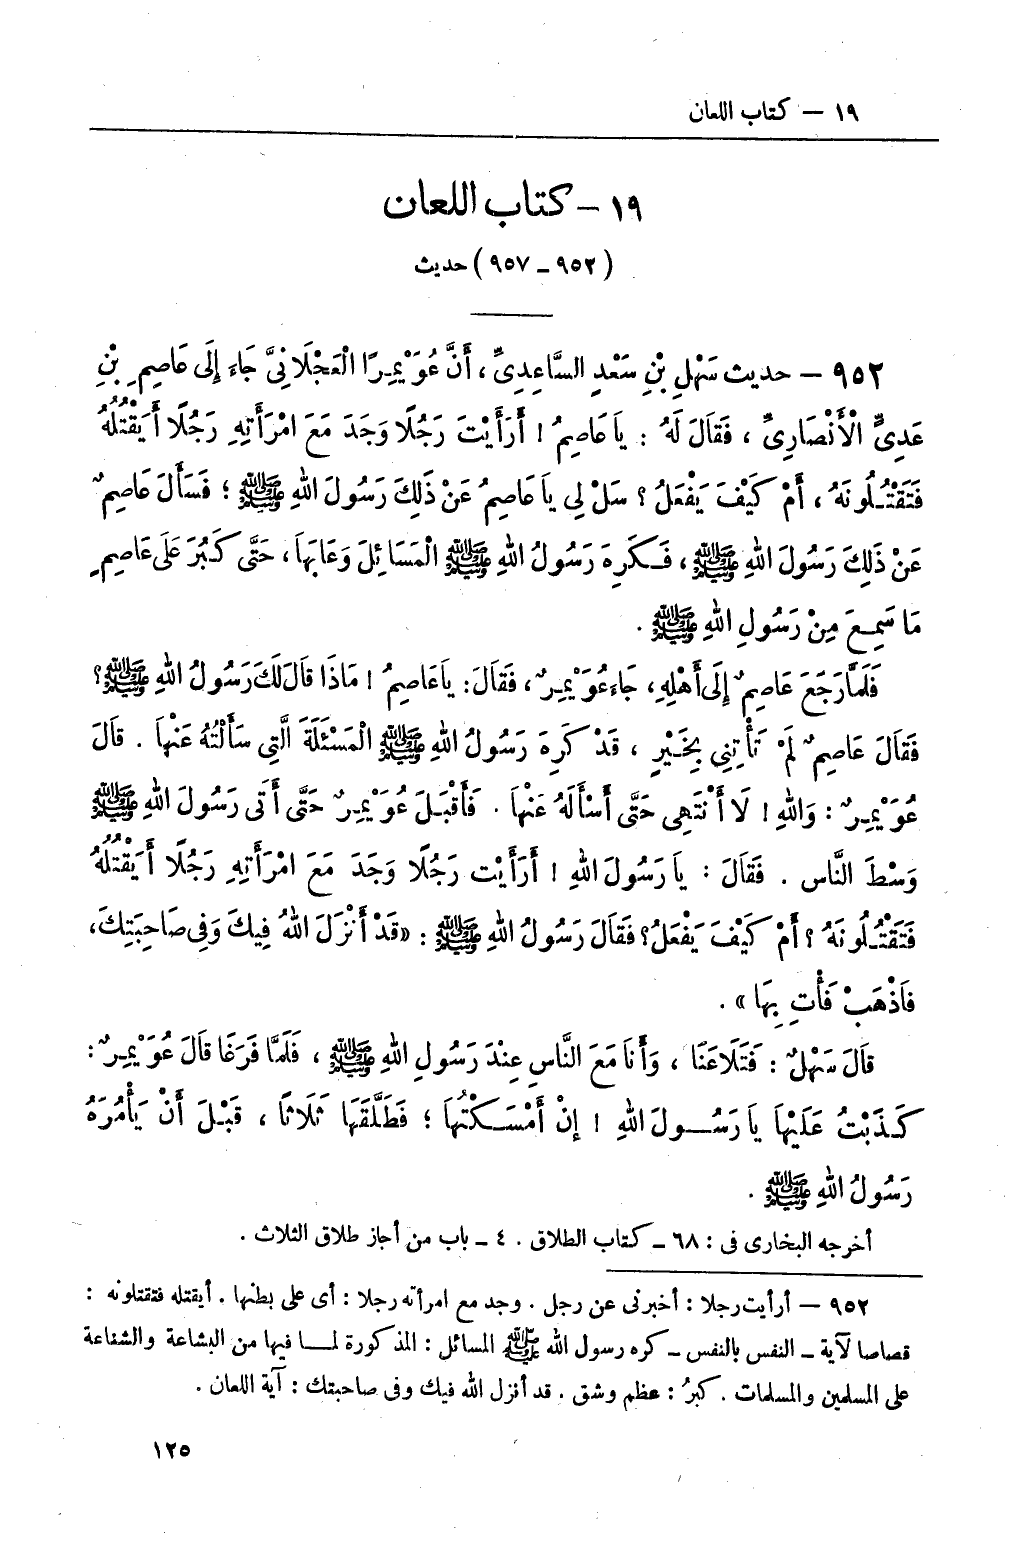 ١٩ — كتاب اللعان
١٩ – كتاب اللعان
(٩٥٢ – ٩٥٧) حديث
٩٥٢ — حديث سَهْلِ بْنِ سَعْدٍ السَّاعِدِىِّ ، أَنَّ عُوَيْمِرًا الْعَجْلَانِىَّ جَاءَ إِلَى عَاصِمِ بْنِ
عَدِىٍّ الْأَنْصَارِىِّ ، فَقَالَ لَهُ : يَا عَاصِمُ ! أَرَأَيْتَ رَجُلًا وَجَدَ مَعَ امْرَأَتِهِ رَجُلًا أَيَقْتُلُهُ
فَتَقْتُلُونَهُ ، أَمْ كَيْفَ يَفْعَلُ ؟ سَلْ لِي يَا عَاصِمُ عَنْ ذَلِكَ رَسُولَ اللهِ ﷺ ؛ فَسَأَلَ عَاصِمٌ
عَنْ ذَلِكَ رَسُولَ اللهِ ﷺ ، فَكَرِهَ رَسُولُ اللهِ ﷺ الْمَسَائِلَ وَعَابَهَا ، حَتَّى كَبُرَ عَلَى عَاصِمٍ
مَا سَمِعَ مِنْ رَسُولِ اللهِ ﷺ .
فَلَمَّا رَجَعَ عَاصِمٌ إِلَى أَهْلِهِ ، جَاءَ عُوَيْمِرٌ ، فَقَالَ : يَا عَاصِمُ ! مَاذَا قَالَ لَكَ رَسُولُ اللهِ ﷺ ؟
فَقَالَ عَاصِمٌ لَمْ تَأْتِنِي بِخَيْرٍ ، قَدْ كَرِهَ رَسُولُ اللهِ ﷺ الْمَسْئَلَةَ الَّتِي سَأَلْتُهُ عَنْهَا . قَالَ
عُوَيْمِرٌ : وَاللهِ ! لَا أَنْتَهِى حَتَّى أَسْأَلَهُ عَنْهَا . فَأَقْبَلَ عُوَيْمِرٌ حَتَّى أَتَى رَسُولَ اللهِ ﷺ
وَسْطَ النَّاسِ . فَقَالَ : يَا رَسُولَ اللهِ ! أَرَأَيْتَ رَجُلًا وَجَدَ مَعَ امْرَأَتِهِ رَجُلًا أَيَقْتُلُهُ
فَتَقْتُلُونَهُ ؟ أَمْ كَيْفَ يَفْعَلُ ؟ فَقَالَ رَسُولُ اللهِ ﷺ : «قَدْ أَنْزَلَ اللهُ فِيكَ وَفِى صَاحِبَتِكَ ،
فَاذْهَبْ فَأْتِ بِهَا» .
قَالَ سَهْلٌ : فَتَلَاعَنَا ، وَأَنَا مَعَ النَّاسِ عِنْدَ رَسُولِ اللهِ ﷺ ، فَلَمَّا فَرَغَا قَالَ عُوَيْمِرٌ :
كَذَبْتُ عَلَيْهَا يَا رَسُولَ اللهِ ! إِنْ أَمْسَكْتُهَا ؛ فَطَلَّقَهَا ثَلَاثًا ، قَبْلَ أَنْ يَأْمُرَهُ
رَسُولُ اللهِ ﷺ .
أخرجه البخارى فى : ٦٨ – كتاب الطلاق . ٤ – باب من أجاز طلاق الثلاث .
٩٥٢ — أرأيت رجلا : أخبرنى عن رجل . وجد مع امرأته رجلا : أى على بطنها . أيقتله فتقتلونه :
قصاصا لآية – النفس بالنفس – كره رسول الله ﷺ المسائل : المذكورة لما فيها من البشاعة والشناعة
على المسلمين والمسلمات . كبرُ : عظم وشق . قد أنزل الله فيك وفى صاحبتك : آية اللعان .
١٢٥